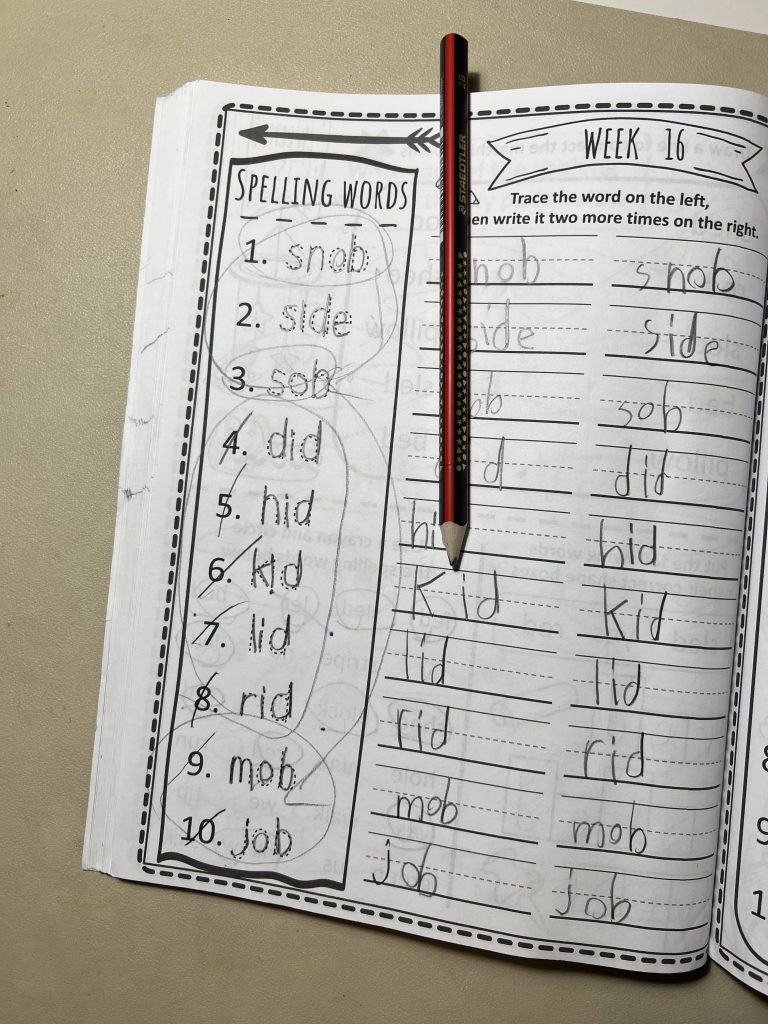 WEEK 16
SPELLING WORDS
Trace the word on the left,
en write it two more times on the right.
1. snob nob snob
2. side side side
3. sob ob sob
4. did d did
5. hid hi hid
6. kid Kid Kid
7. lid lid lid
8. rid rid rid
9. mob mob mob
10. job job job
STAEDTLER 2B